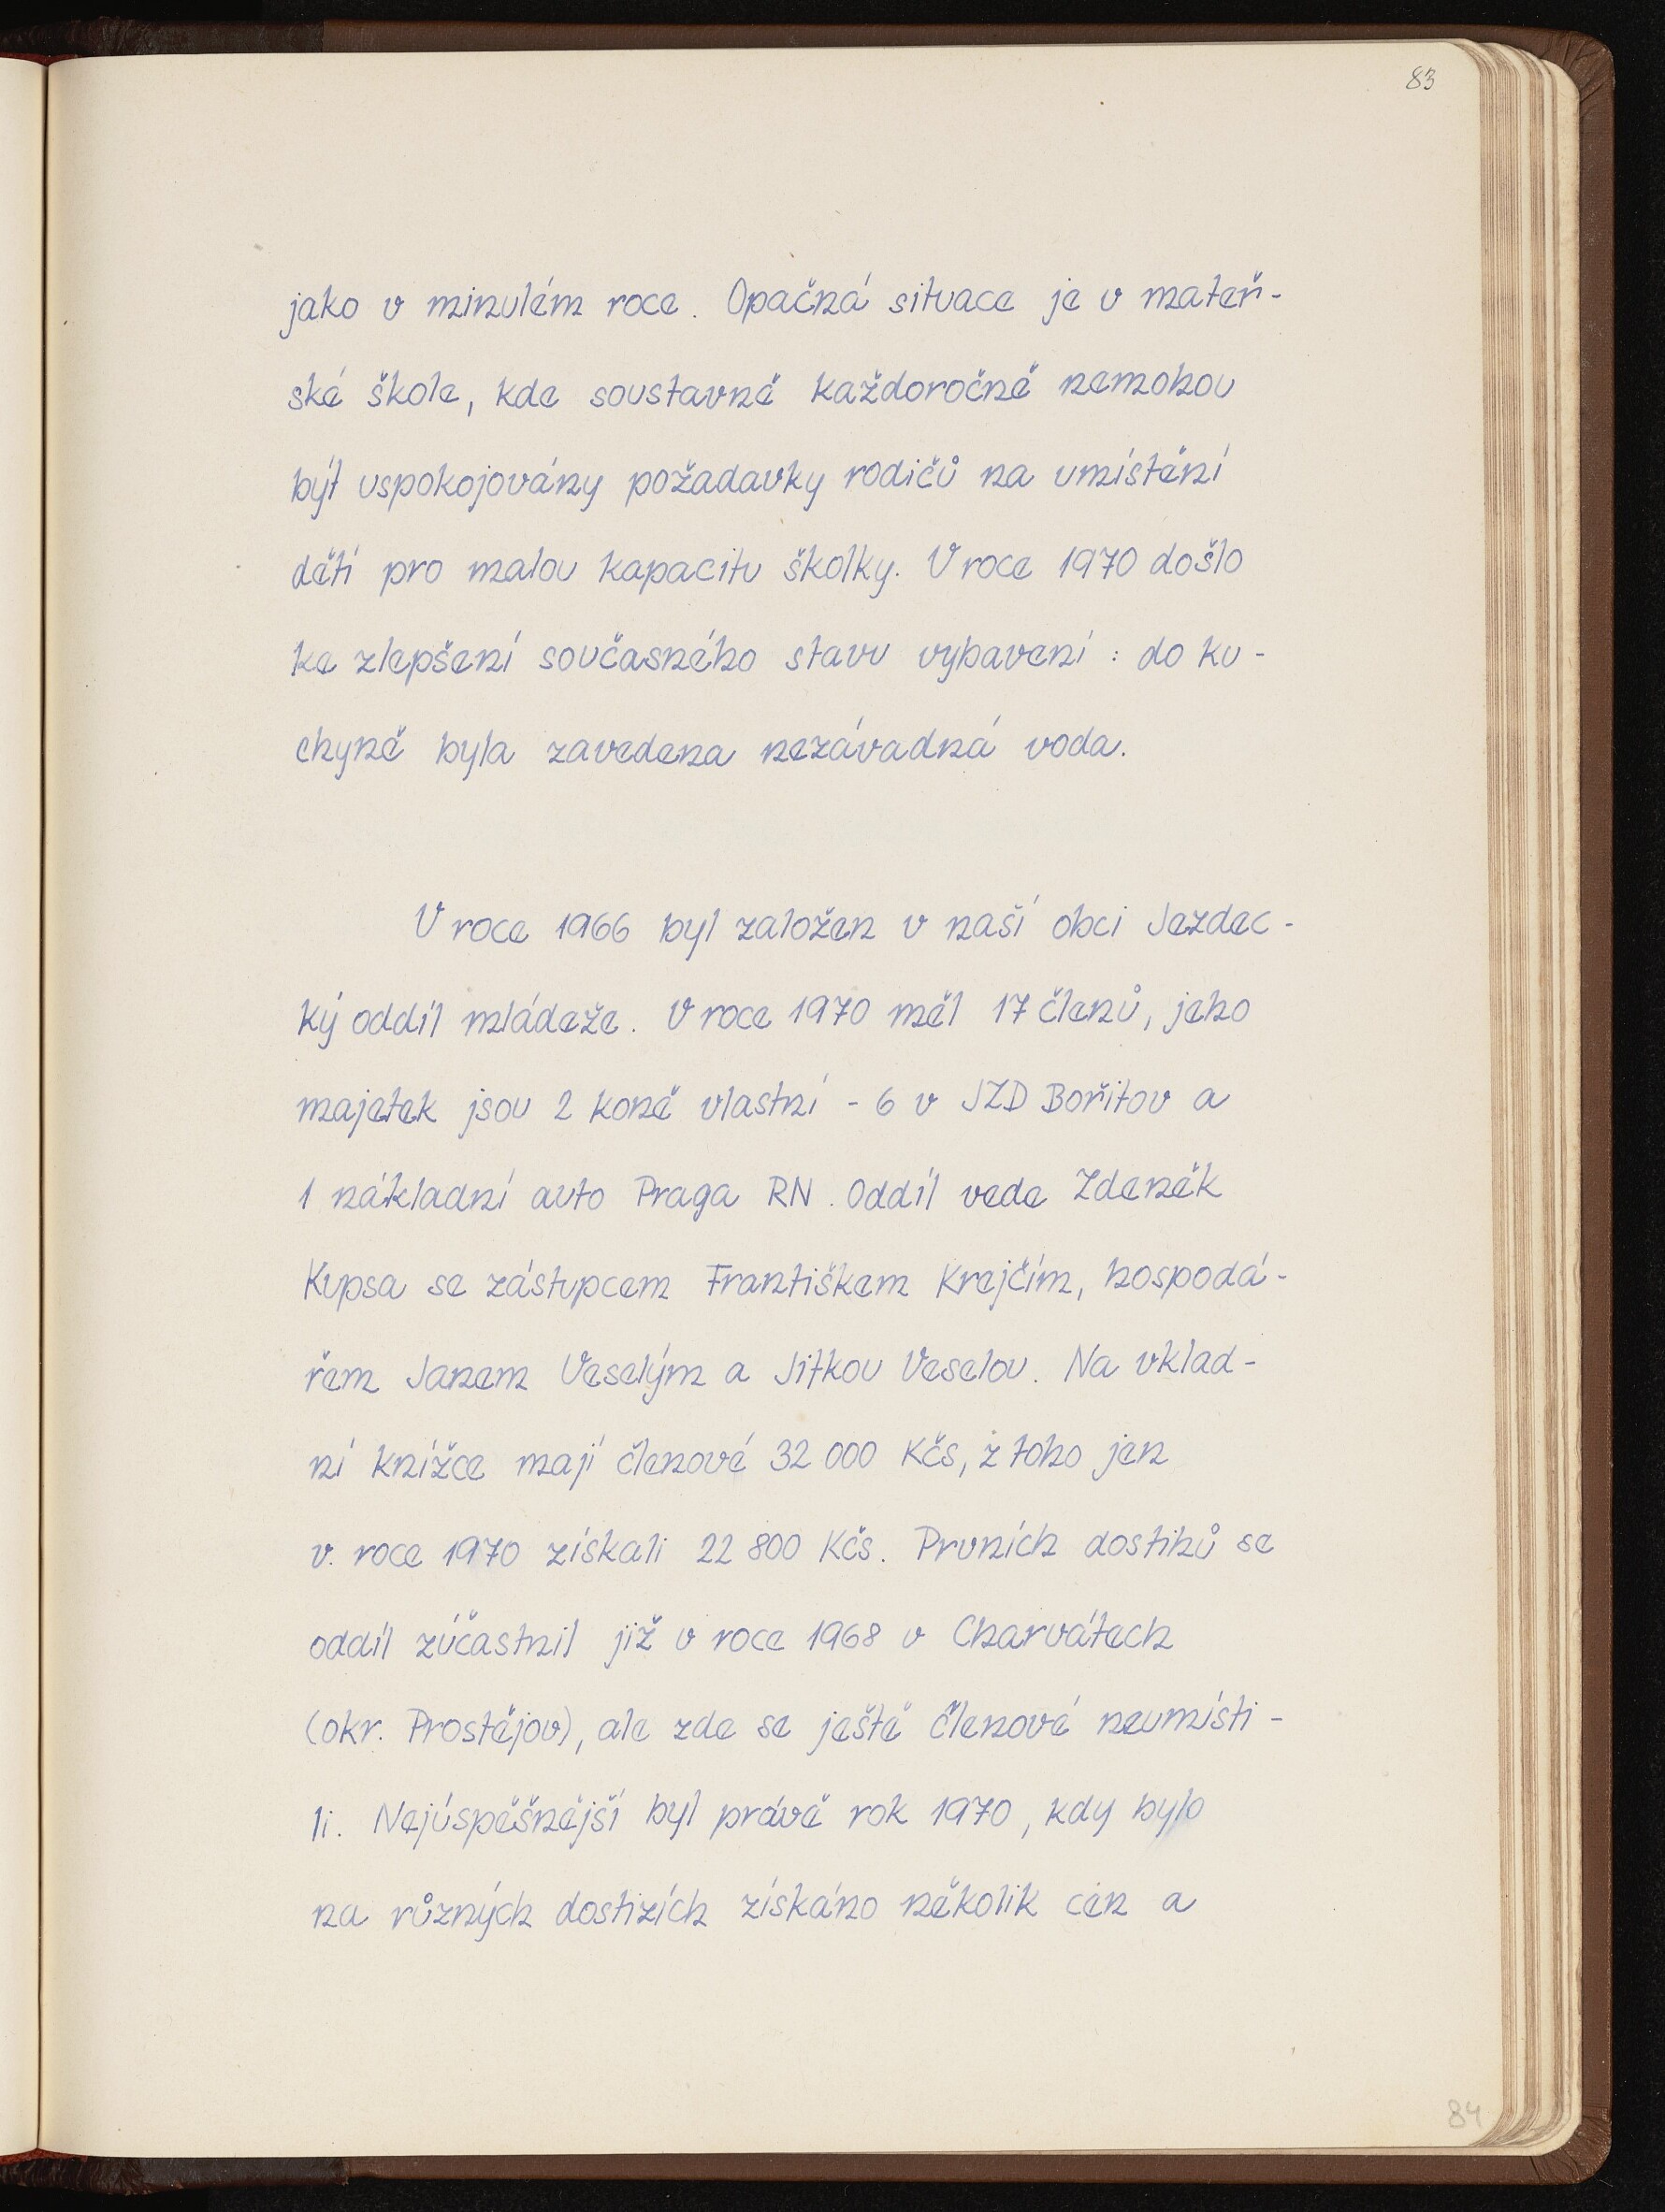 83
jako v minulém roce. Opačná situace je v mateř-
ské škole, kde soustavně každoročně nemohou
být uspokojovány požadavky rodičů na umístění
dětí pro malou kapacitu školky. V roce 1970 došlo
ke zlepšení současného stavu vybavení : do ku-
chyně byla zavedena nezávadná voda.
V roce 1966 byl založen v naší obci Jezdec-
ký oddíl mládeže. V roce 1970 měl 17 členů, jeho
majetek jsou 2 koně vlastní - 6 v JZD Bořitov a
1 nákladní auto Praga RN. Oddíl vede Zdeněk
Kupsa se zástupcem Františkem Krejčím, hospodá-
řem Janem Veselým a Jitkou Veselou. Na vklad-
ní knížce mají členové 32 000 Kčs, z toho jen
v. roce 1970 získali 22 800 Kčs. Prvních dostihů se
oddíl zúčastnil již v roce 1968 v Charvátech
(okr. Prostějov), ale zde se ještě členové neumísti-
li. Nejúspěšnější byl právě rok 1970, kdy bylo
na různých dostizích získáno několik cen a
84